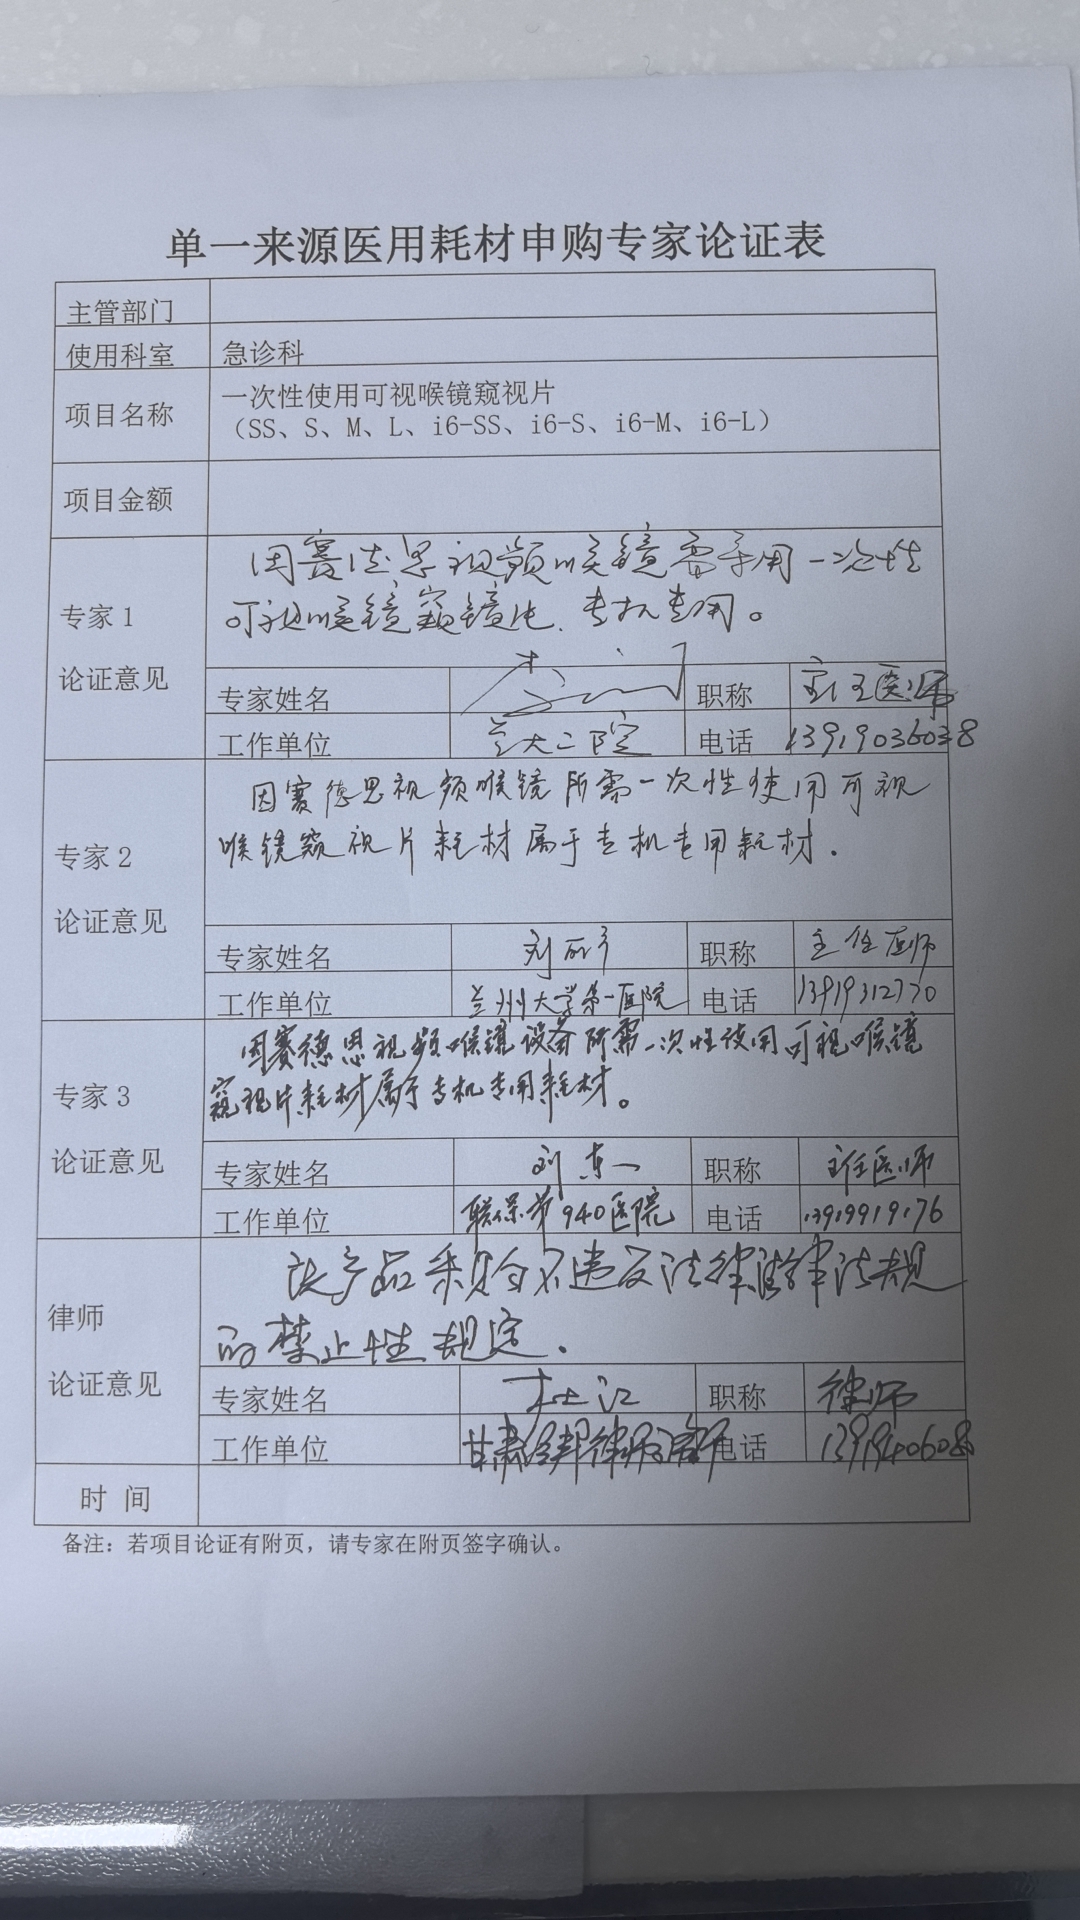 单一来源医用耗材申购专家论证表
主管部门
使用科室 急诊科
项目名称 一次性使用可视喉镜窥视片
（SS、S、M、L、i6-SS、i6-S、i6-M、i6-L）
项目金额
专家1
论证意见
因赛德思视频喉镜需采用一次性
可视喉镜窥镜片、专机专用。
专家姓名 职称
工作单位 兰大二院 电话 13919036038
专家2
论证意见
因赛德思视频喉镜所需一次性使用可视
喉镜窥视片耗材属于专机专用耗材.
专家姓名 刘 职称 主任医师
工作单位 兰州大学第一医院 电话 13919312770
专家3
论证意见
因赛德思视频喉镜设备所需一次性使用可视喉镜
窥视片耗材属于专机专用耗材。
专家姓名 刘东一 职称 主任医师
工作单位 联保第940医院 电话 13919919176
律师
论证意见
该产品采购不违反法律法规
的禁止性规定.
专家姓名 杜江 职称 律师
工作单位 甘肃 电话
时 间
备注：若项目论证有附页，请专家在附页签字确认。